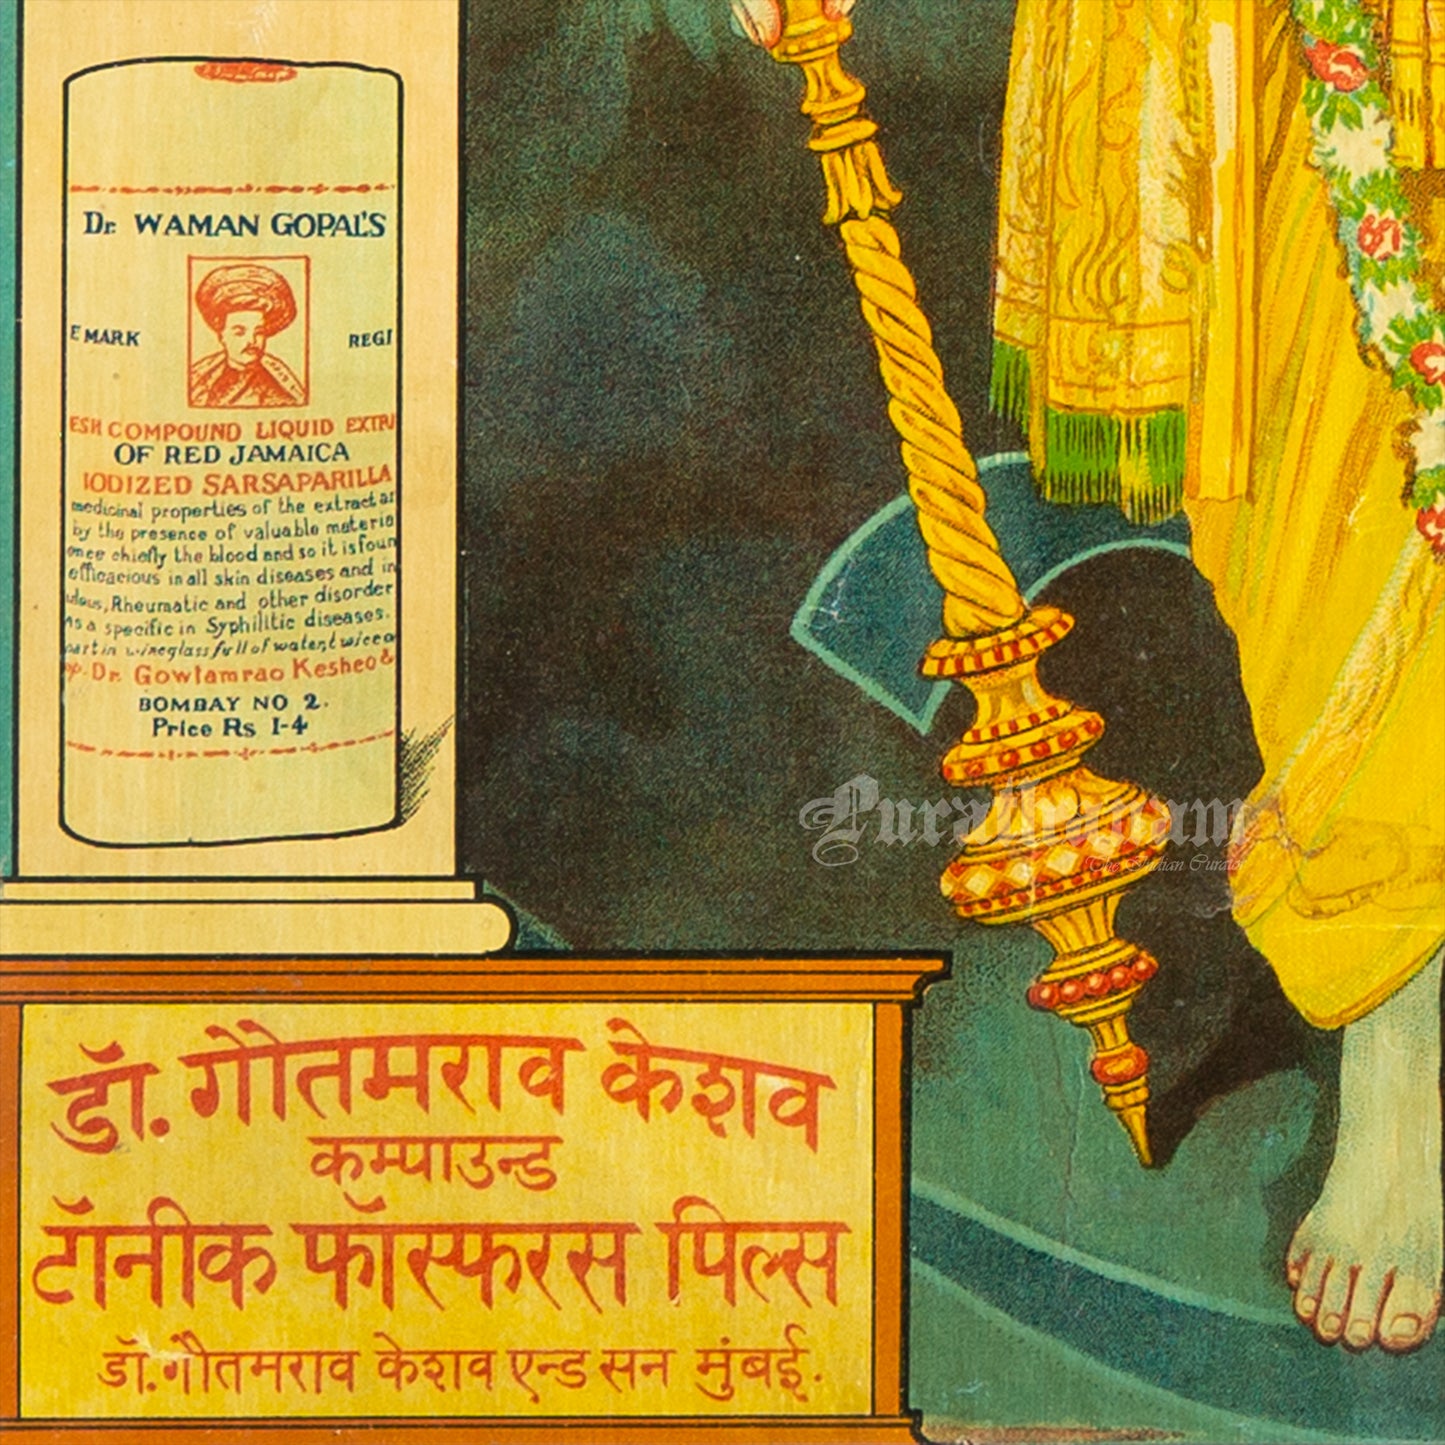 Dr. WAMAN GOPAL'S
E MARK REGI
ESH COMPOUND LIQUID EXTRA
OF RED JAMAICA
IODIZED SARSAPARILLA
medicinal properties of the extract ar
by the presence of valuable materia
once chiefly the blood and so it is foun
efficacious in all skin diseases and in
ulous, Rheumatic and other disorder
As a specific in Syphilitic diseases.
part in wineglass full of water, twice a
Dr. Gowtamrao Kesheo &
BOMBAY NO 2.
Price Rs 1-4
Purathanam
The Indian Curator
डॉ. गौतमराव केशव
कम्पाउन्ड
टॉनीक फॉस्फरस पिल्स
डॉ. गौतमराव केशव एन्ड सन मुंबई.